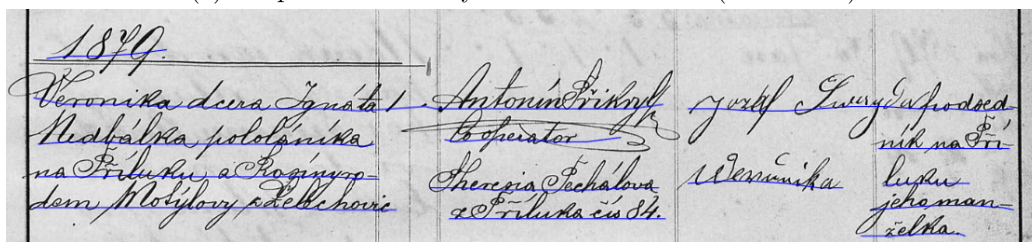 1879.
Veronika dcera Ignáta 1.
Nedbálka pololáníka
na Příluku a Rozíny ro-
dem Motýlovy z Želechovic
Antonín Přikryl
Cooperator
Theresia Pechálova
z Příluka čís 84.
Jozef
Weruňika
podsed-
ník na Pří-
luku
jeho man-
želka.